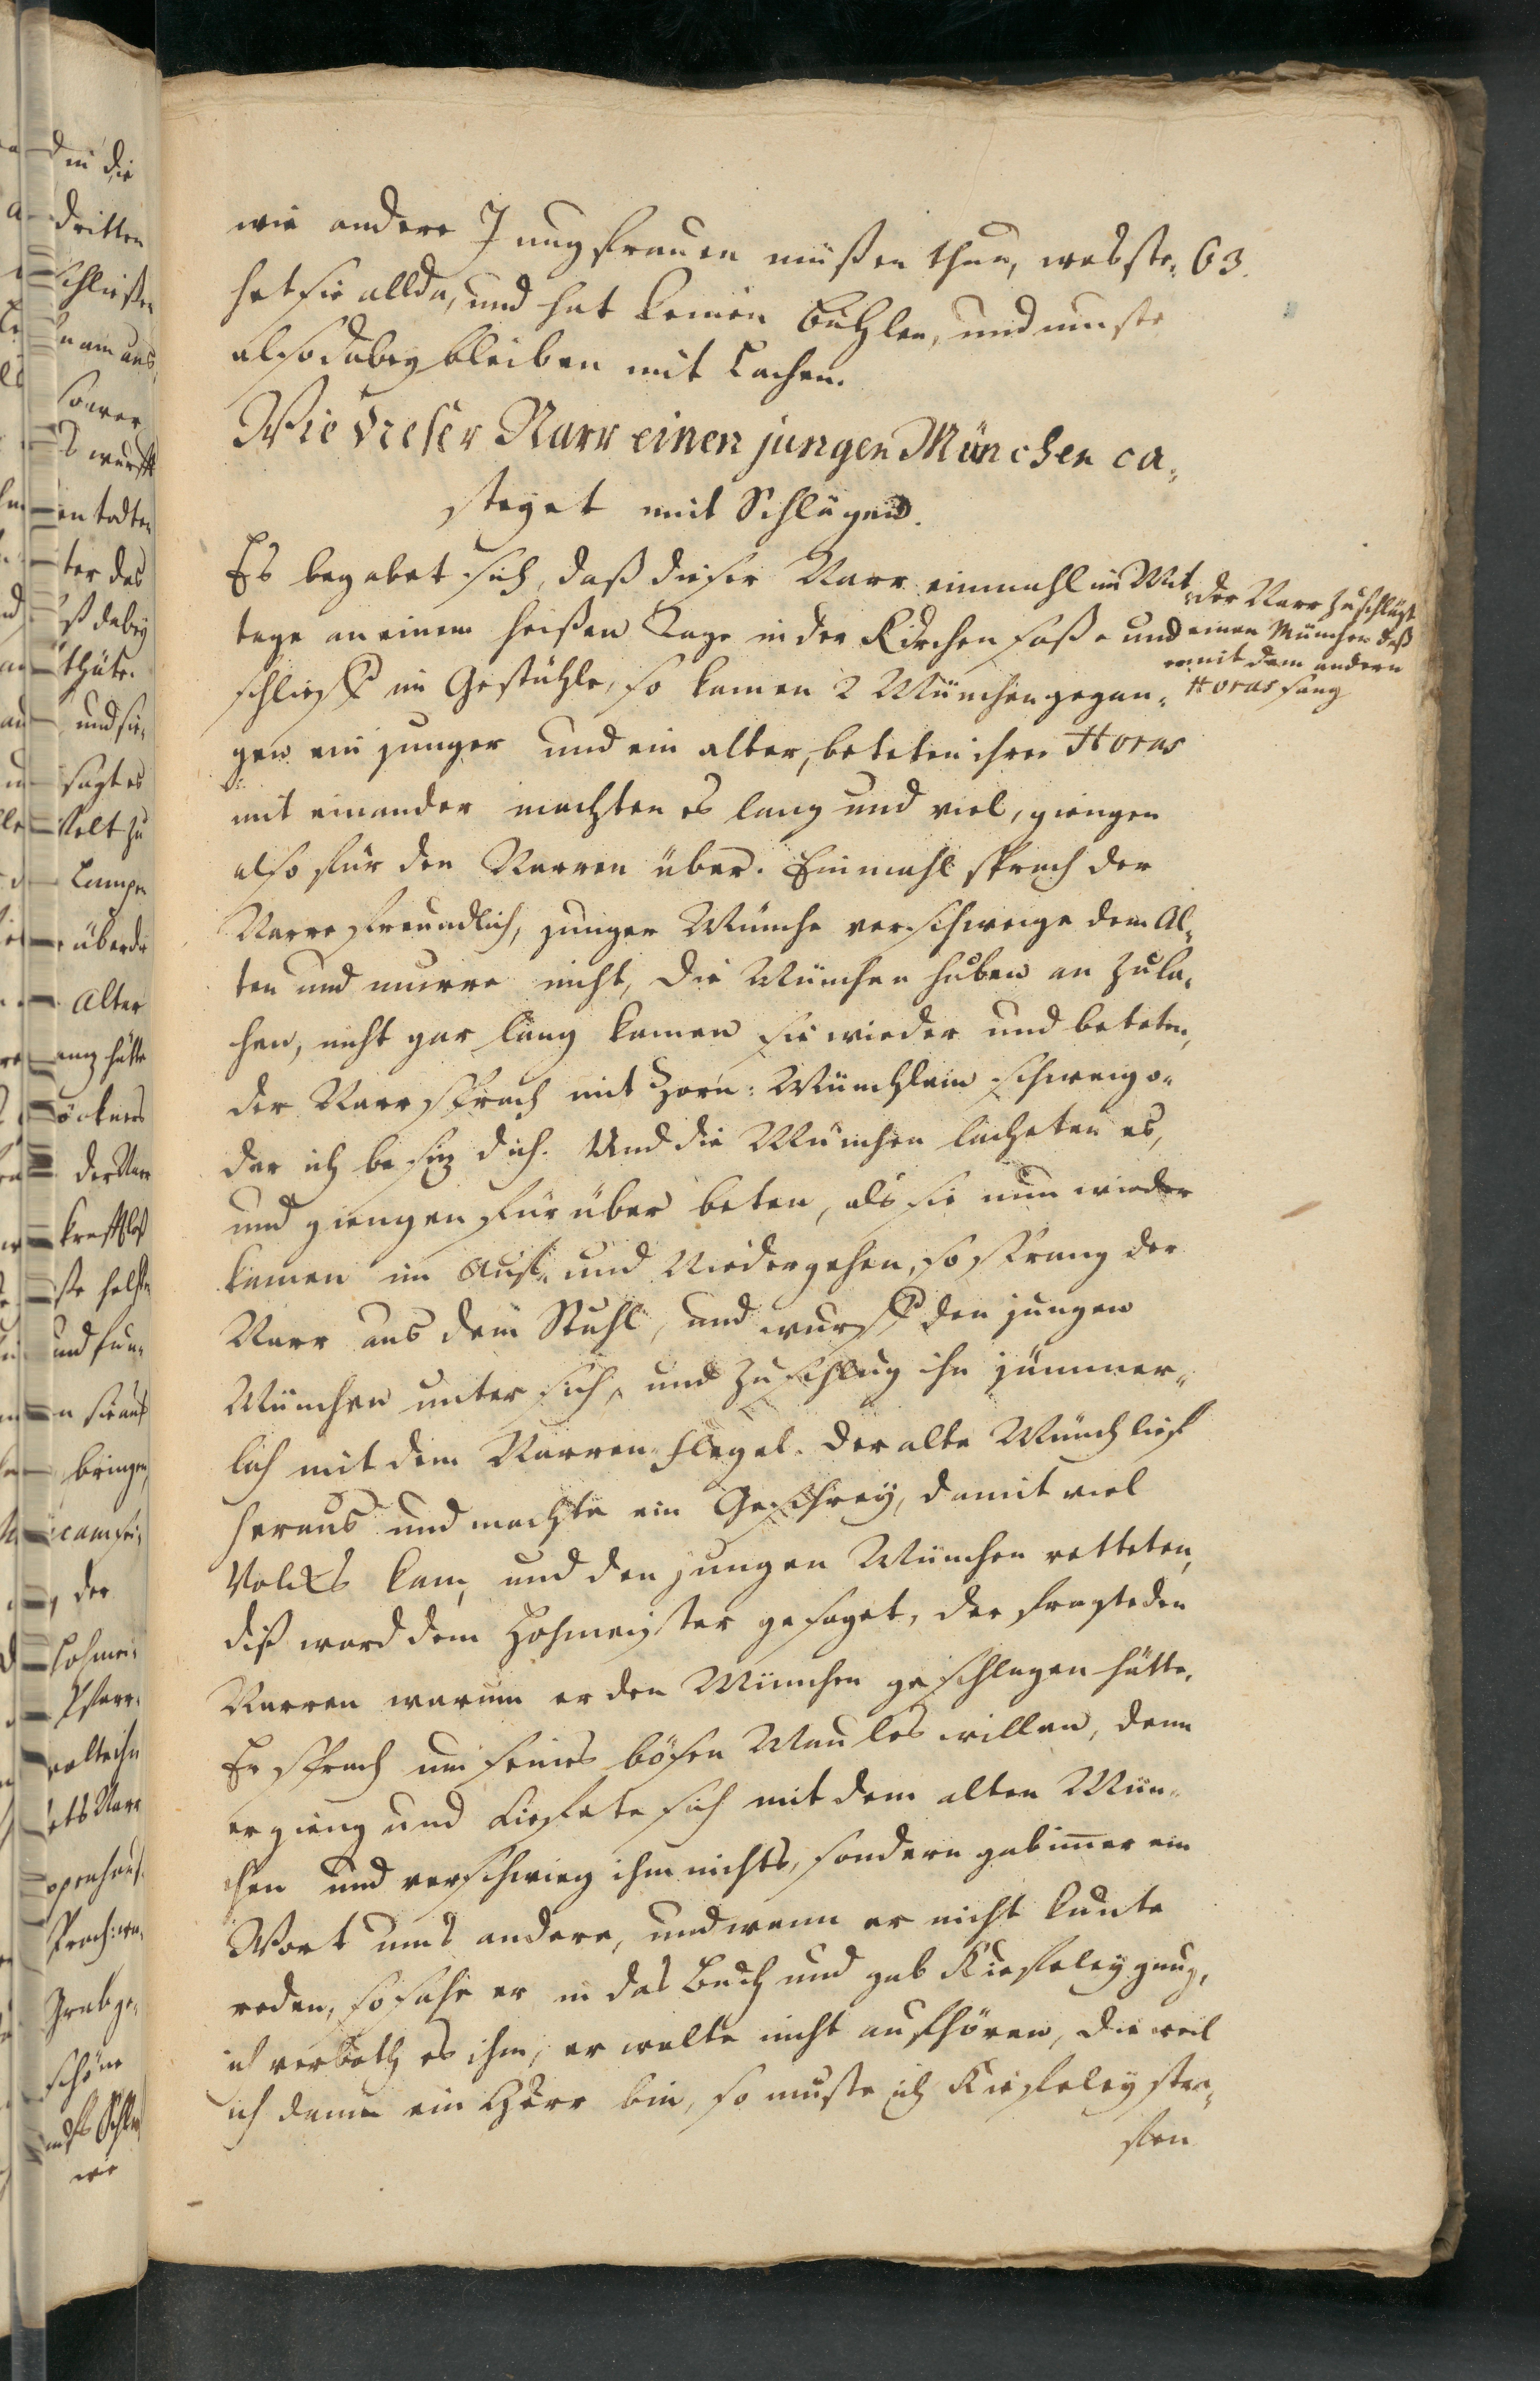 wie andere Jungfrauen müßen thun, webste- 63.
het sie allda, und hat keinen Buhlen, und muste
also dabey bleiben mit Lachen.
Wie dieser Narr einen jungen München ca-
steyet mit Schlägen.
Es begabet sich, daß dieser Narr einmahl im Mit-
tage an einem heißen Tage in der Kirchen saß und
schlieff im Gestühle, so kamen 2 München gegan-
gen ein junger und ein alter, beteten ihre Horas
mit einander machten es lang und viel, giengen
also für den Narren über. Einmahl sprach der
Narre freundlich, junger Münche verschweige dem Al-
ten und murre nicht, die München huben an zu la-
chen, nicht gar lang kamen sie wieder und beteten,
der Narr sprach mit Zorn: Münchlein schweig o-
der ich besiz dich. Und die München lacheten es,
und giengen für über beten, als sie nun wieder
kamen im Auf- und Niedergehen, so sprang der
Narr aus dem Stuhl, und wurff den jungen
München unter sich, und zuschlug ihn jämmer-
lich mit dem Narren-flegel. der alte Münch lief
heraus und machte ein Geschrey, damit viel
Volcks kam, und den jungen München retteten,
diß ward dem Hofmeister gesaget, der fragte den
Narren warum er den München geschlagen hätte.
Er sprach um seines bösen Maules willen, denn
er gieng und kiefete sich mit dem alten Mün-
chen und verschwieg ihm nichts, sondern gab immer ein
Wort ums andere, und wenn er nicht kunte
reden, so sahe er in das Buch und gab Kiefeley gnug,
ich verboth es ihm, er wolte nicht aufhören, die weil
ich denn ein Herr bin, so muste ich Kiefeley stra-
fen
der Narr zuschlägt
einen München daß
er mit dem andern
Horas sang